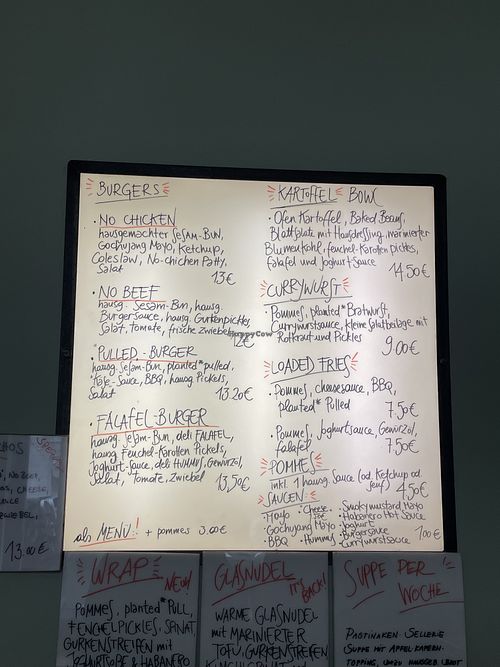 BURGERS
• NO CHICKEN
hausgemachter Sesam-Bun,
Gochujang Mayo, Ketchup,
Coleslaw, No-chicken Patty,
Salat
13€
• NO BEEF
hausg. Sesam-Bun, hausg.
Burgersauce, hausg. Gurkenpickles,
Salat, Tomate, frische Zwiebel
12€
• PULLED - BURGER
hausg. Sesam-Bun, planted* pulled,
Käse-Sauce, BBQ, hausg. Pickels,
Salat
13.20€
• FALAFEL-BURGER
hausg. Sesam-Bun, deli FALAFEL,
hausg. Fenchel-Karotten Pickels,
Joghurt-Sauce, deli HUMMUS, Gewürzöl,
Salat, Tomate, Zwiebel
13,50€
als MENÜ! + pommes 3.00€
KARTOFFEL BOWL
• Ofen Kartoffel, Baked Beans,
Blattsalate mit Hausdressing, marinierter
Blumenkohl, Fenchel-Karotten pickles,
Falafel und Joghurtsauce
14,50€
CURRYWURST
• Pommes, planted* Bratwurst,
Currywurstsauce, kleine Salatbeilage mit
Rotkraut und Pickles
9.00€
LOADED FRIES
• Pommes, cheesesauce, BBQ,
planted* Pulled
7,50€
• Pommes, Joghurtsauce, Gewürzöl,
falafel
7,50€
POMMES
inkl. 1 hausg. Sauce (od. Ketchup od.
Senf)
4,50€
SAUCEN
• Mayo • Cheese • Smokymustard Mayo
• Habanero Hot Sauce
• Gochujang Mayo • Joghurt
• Burgersauce
• BBQ • Hummus • Currywurstsauce
1,00€
HappyCow
CHOS
13.00€
WRAP
NEW!
POMMES, planted* PULL,
FENCHELPICKLES, SPINAT,
GURKENSTREIFEN mit
JOGHURTSOSSE & HABANERO
GLASNUDEL
IT'S BACK!
WARME GLASNUDEL
mit MARINIERTER
TOFU, GURKENSTREIFEN
SUPPE DER
WOCHE
PASTINAKEN-SELLERIE
SUPPE MIT APFEL KAREN-